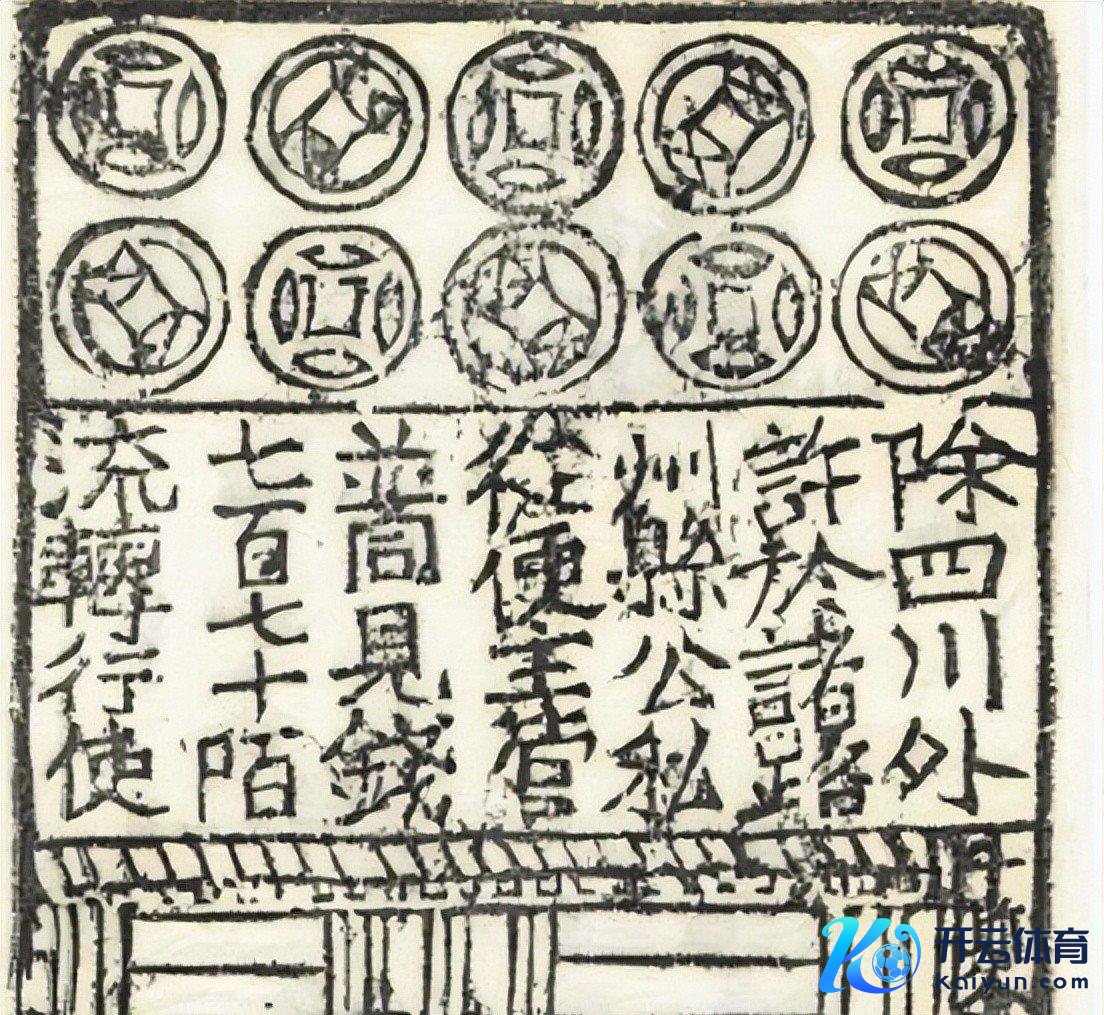 除四川外
許於諸路
州縣公私
從便主管
並同見錢
七百七十陌
流轉行使
开云体育
Kaiyun.com